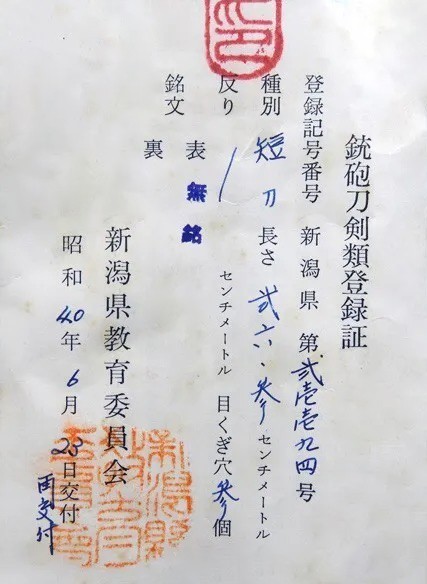 銃砲刀剣類登録証
登録記号番号 新潟県 第弐壱壱九四号
種別 短刀 長さ 弐六・参センチメートル
反り センチメートル 目くぎ穴 参個
銘文 表 無銘
裏
新潟県教育委員会
昭和40年6月23日交付
再交付